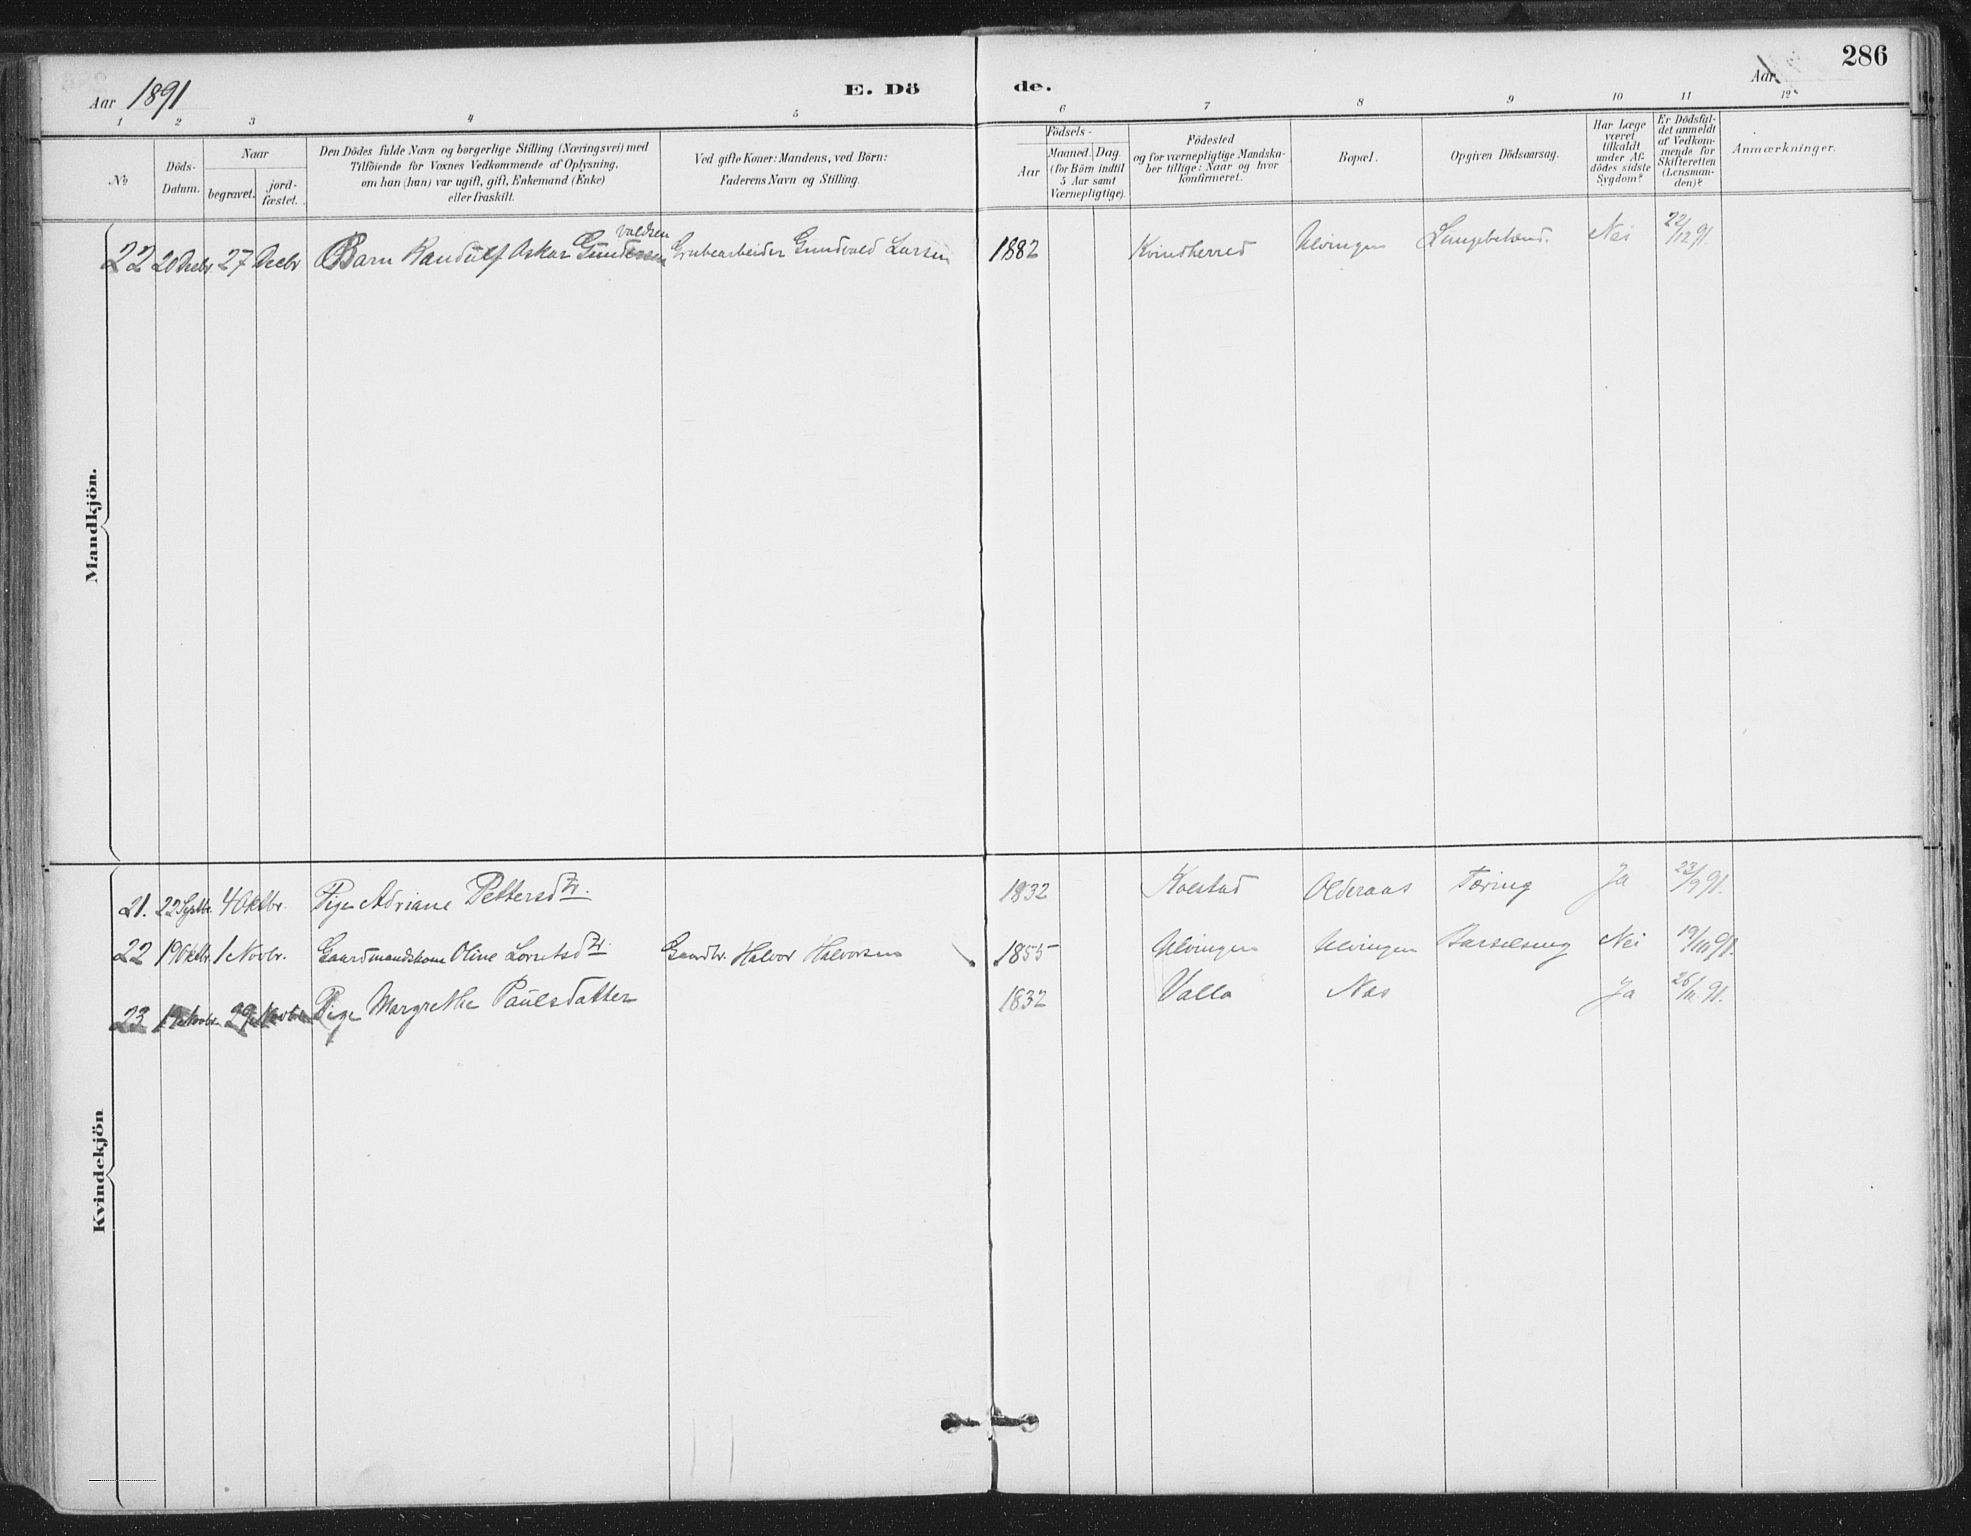 Aar 1891 E. Dö de. Aar 286
1 2 3 4 5 6 7 8 9 10 11 12
№
Döds-
Datum.
Naar
begravet.
jord-
fæstet.
Den Dödes fulde Navn og borgerlige Stilling (Næringsvei) med
Tilföiende for Voxnes Vedkommende af Oplysning,
om han (hun) var ugift, gift, Enkemand (Enke)
eller fraskilt.
Ved gifte Koner: Mandens, ved Börn:
Faderens Navn og Stilling.
Födsels-
Aar
Maaned. Dag
(for Börn indtil
5 Aar samt
Værnepligtige).
Födested
og for værnepligtige Mandska-
ber tillige: Naar og hvor
konfirmeret.
Bopæl.
Opgiven Dödsaarsag.
Har Læge
været
tilkaldt
under Af-
dödes sidste
Sygdom?
Er Dödsfal-
det anmeldt
af Vedkom-
mende for
Skifteretten
(Lensman-
den)?
Anmærkninger.
Mandkjön.
valdsen
22 20 Decbr 27 Decbr Barn Randulf Oskar Gundersen Grubearbeider Gundvald Larsen 1882 Kvindherred Ulvingen Lungebetænd. Nei 22/12 91.
Kvindekjön
21. 22 Septbr. 4 Oktbr. Pige Adriane Pettersdtr. 1832 Kolstad Olderaas Tæring Ja 23/9 91.
22 19 Oktbr. 1 Novbr. Gaardmandskone Oline Lorntsdtr. Gaardbr. Halvor Halvorsen 1855 Ulvingen Ulvingen Barselseng Nei 19/10 91.
23 19 Novbr. 29 Novbr. Pige Margrethe Paulsdatter 1832 Valla Nas Ja 26/11 91.